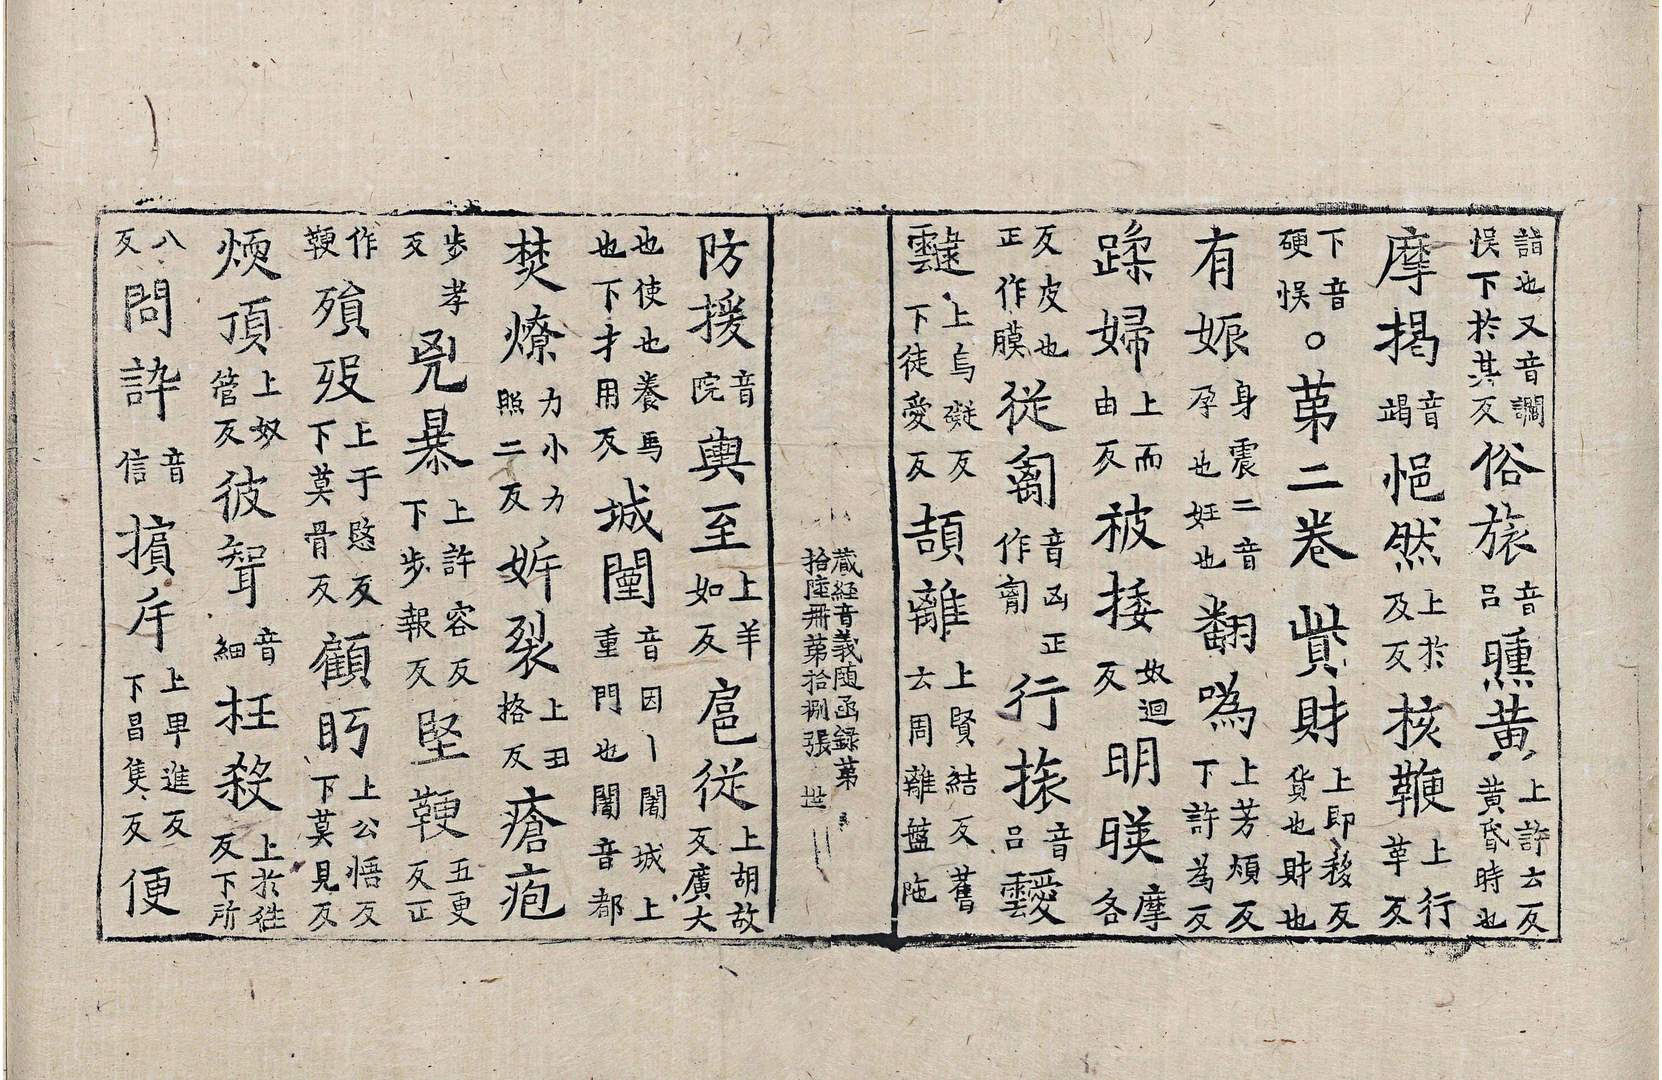 詣也又音調悞下於其反俗旅音呂曛黃上許云反黃昏時也
摩揭音竭悒然上於及反核鞭上行革反
下音硬悞○苐二卷貲財上即移反貨也財也
有娠身震二音孕也妊也翻㗲上芳煩反下許為反
蹂婦上而由反被捼奴迴反明暎摩各
反皮也正作膜從㒵音凶正作胷行搸音呂靉
靆上烏礙反下徒愛反頡離上賢結反舊云周離盤陁
藏経音義随函録苐
拾陸冊苐拾捌張 世
防援音院輿至上羊如反扈従上胡故反廣大
也使也養馬也下才用反城闉音因丨闍城上重門也闍音都
焚燎力小力照二反㸧裂上丑格反瘡疱
步孝反兇暴上許容反下步報反堅鞕五更反正
作鞭殞歿上于愍反下莫骨反顧眄上公悟反下莫見反
煗頂上奴管反彼聟音細枉殺上於往反下所
八反問訊音信擯斥上卑進反下昌隻反便